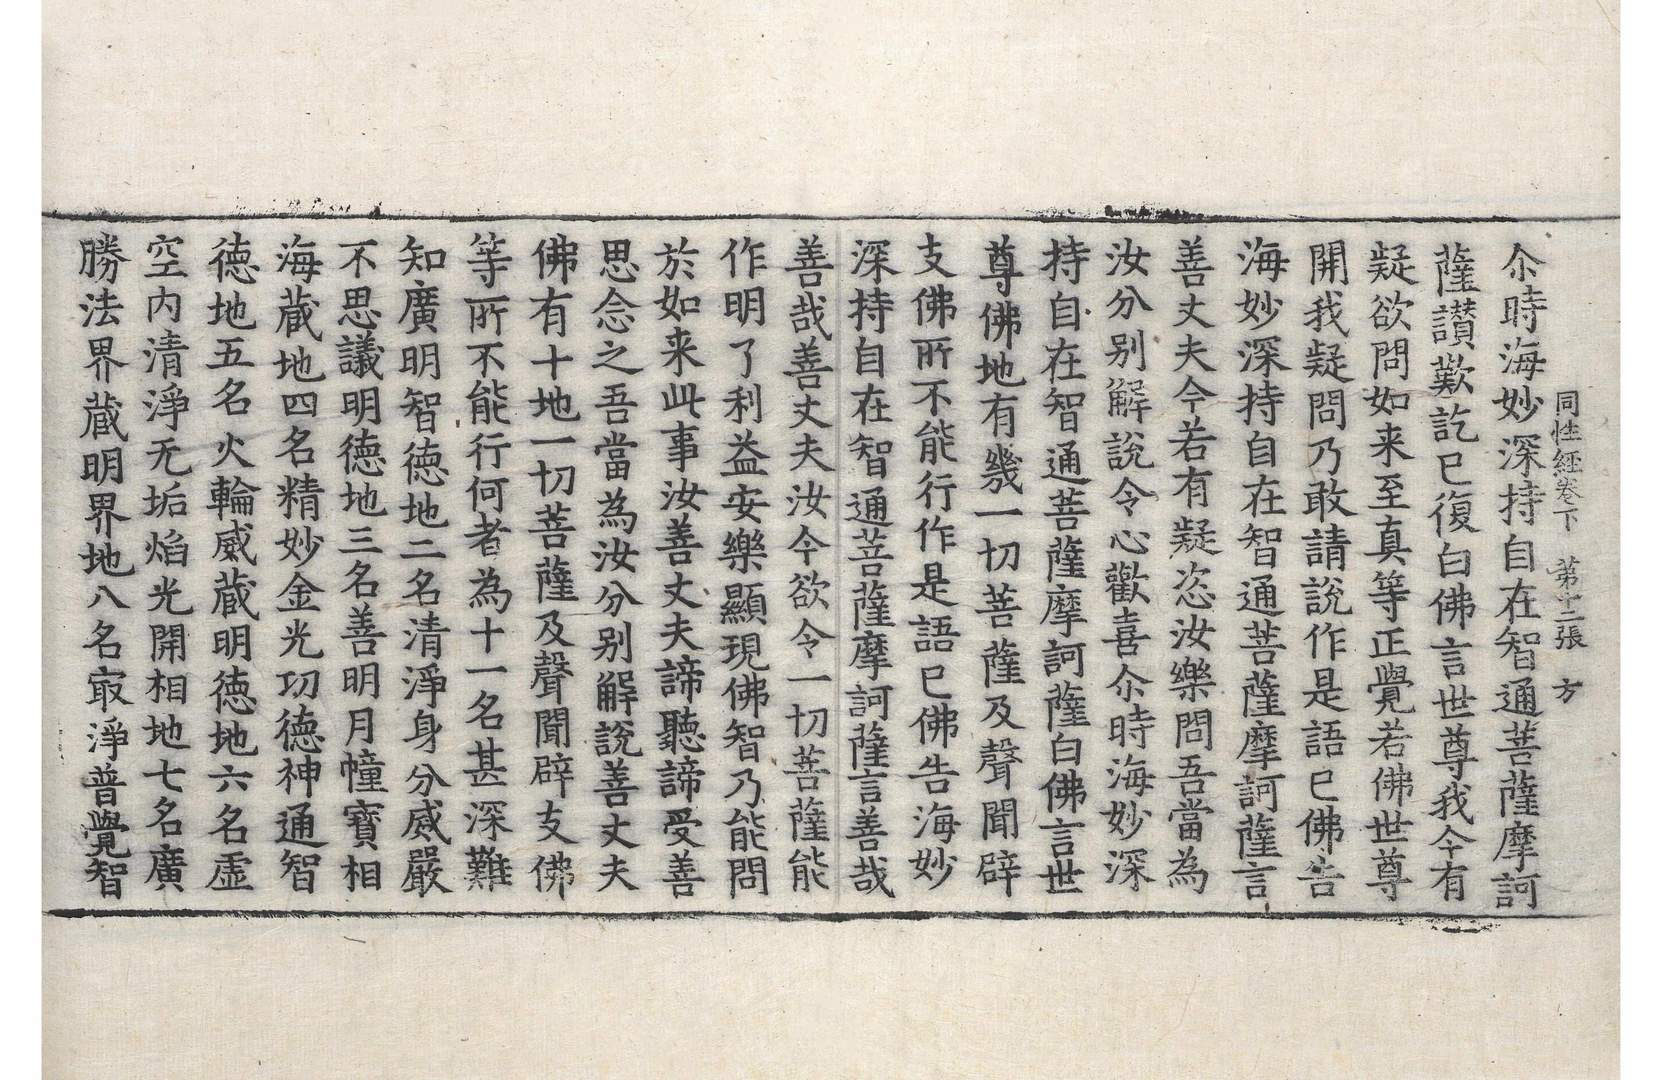 同性經卷下　第十二張　方
尒時海妙深持自在智通菩薩摩訶
薩讃歎訖已復白佛言世尊我今有
疑欲問如来至真等正覺若佛世尊
開我疑問乃敢請說作是語已佛告
海妙深持自在智通菩薩摩訶薩言
善丈夫今若有疑恣汝樂問吾當為
汝分别解說令心歡喜尒時海妙深
持自在智通菩薩摩訶薩白佛言世
尊佛地有幾一切菩薩及聲聞辟
支佛所不能行作是語已佛告海妙
深持自在智通菩薩摩訶薩言善哉
善哉善丈夫汝今欲令一切菩薩能
作明了利益安樂顯現佛智乃能問
於如来此事汝善丈夫諦聽諦受善
思念之吾當為汝分别解說善丈夫
佛有十地一切菩薩及聲聞辟支佛
等所不能行何者為十一名甚深難
知廣明智德地二名清淨身分威嚴
不思議明德地三名善明月幢寶相
海蔵地四名精妙金光功德神通智
德地五名火輪威蔵明德地六名虚
空内清淨无垢焰光開相地七名廣
勝法界蔵明界地八名㝡淨普覺智